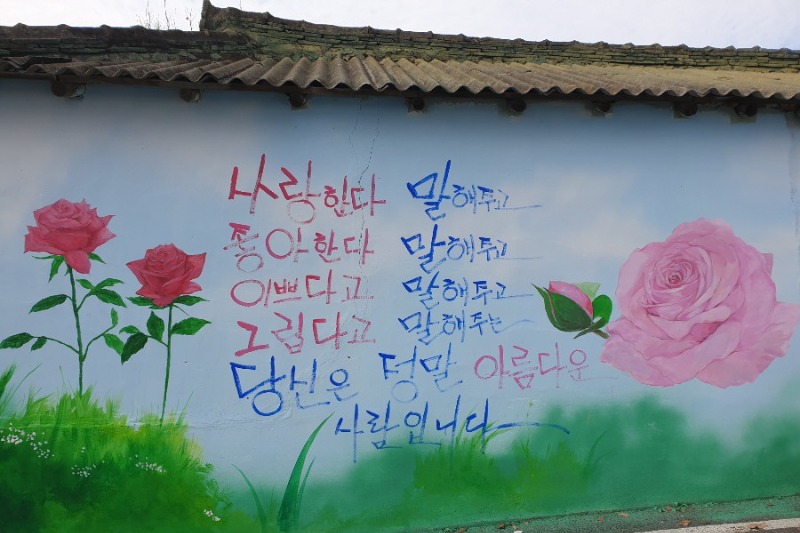 사랑한다 말해주고
좋아한다 말해주고
이쁘다고 말해주고
그립다고 말해주는
당신은 정말 아름다운
사람입니다